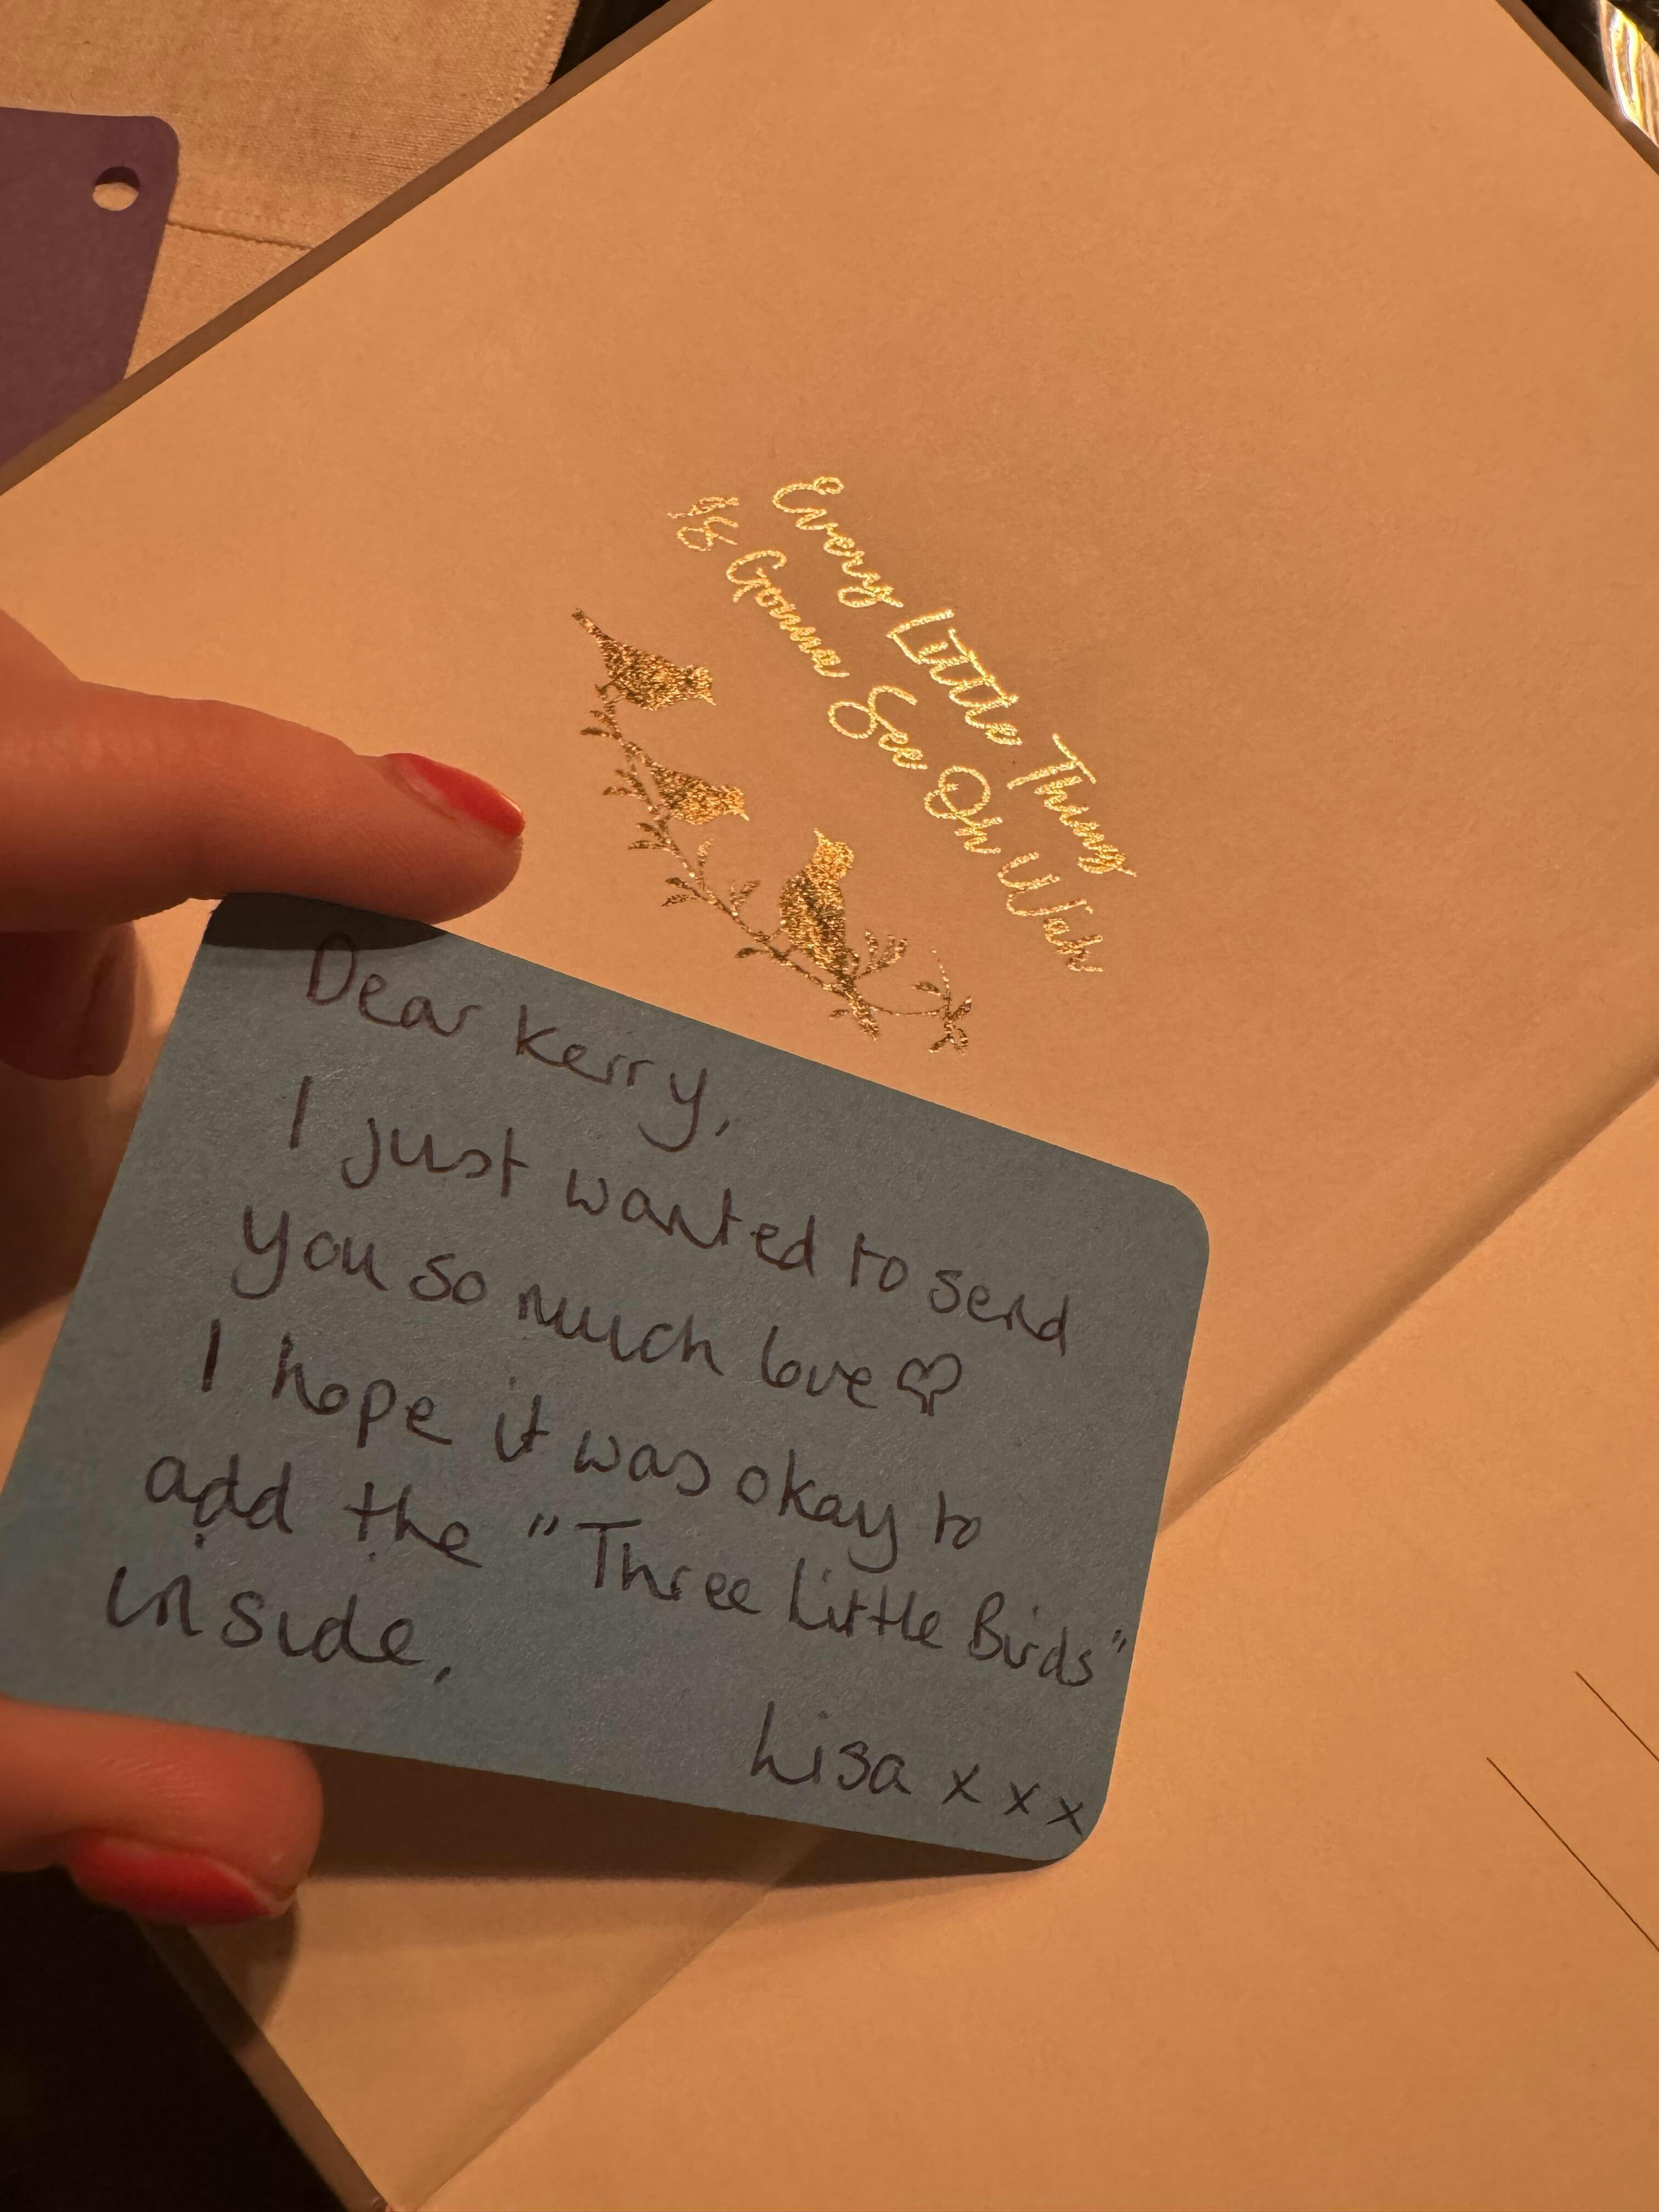 Every Little Thing
Is Gonna See Oh Wah
Dear Kerry,
I just wanted to send
you so much love♡
I hope it was okay to
add the "Three Little Birds"
inside.
Lisa x x x